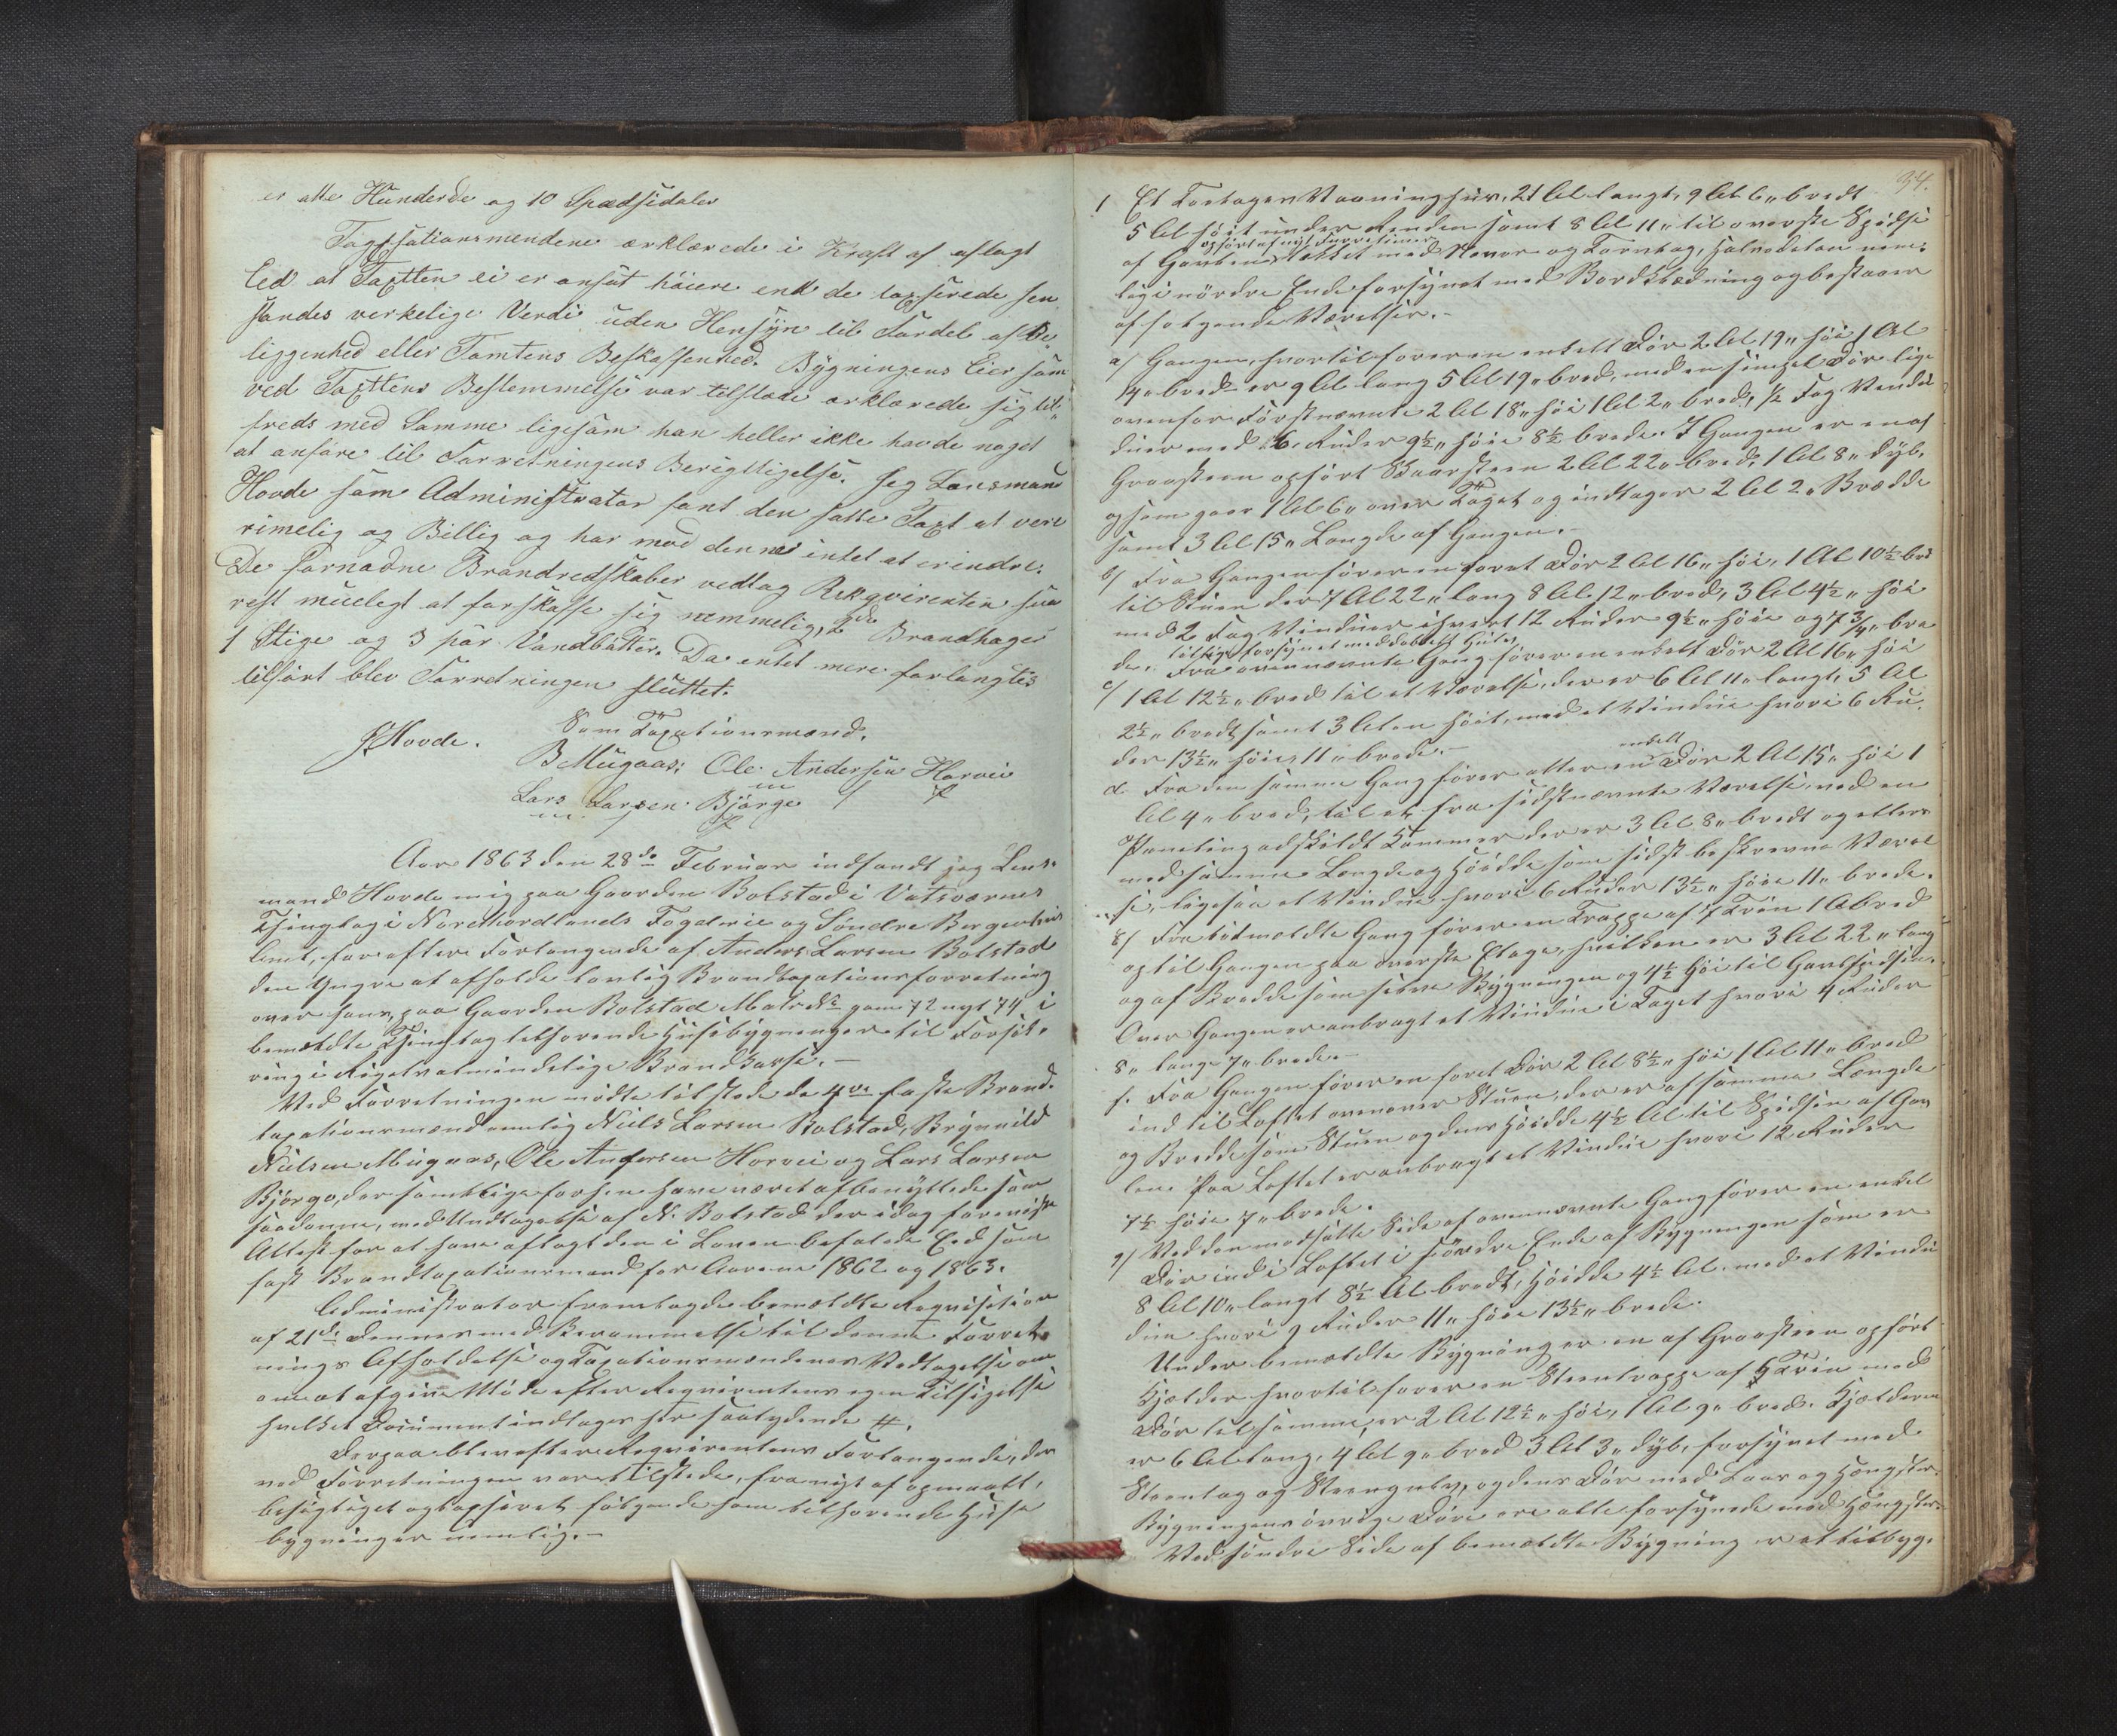 er otte Hunderde og 10 Spædsidaler
Tagsationsmendene ærklærede i Kraft af aflagt
Eed at Taxtten ei er ansat höiere end de taxserede Jen
standes verkelige Verdi uden Hensÿn til Fordel af Be
liggenhed eller Tomtens Beskaffenhed. Bÿgningens Eier som
ved Taxttens Bestemmelse var tilstæde ærklærede sig til
freds med Samme ligesom han heller ikke havde noget
at anföre til Forretningens Berigttigelse. Jeg Lensmand
Hovde som Administrator fant den satte Taxt at vere
rimelig og Billig og har mod denne intet at erindre.
De fornödne Brandredskaber vedtog Rekqvirenten sna
rest muelegt at forskaffe sig nemmelig, 2de Brandhager
1 Stige og 3 par Vandbötter. Da entet mere forlangtes
tilfört blev Forretningen sluttet.
Som Taxationsmænd.
JHovde.
BMugaas; Ole Andersen Horvei
Lars Larsen Björge
Aar 1863 den 28de Februar indfandt jeg Lens-
mand Hovde mig paa Gaarden Bolstad i Vatsværnes
Thinglag i Nordhordlands Fogderie og Söndre Bergenhus
Amt, for efter Forlangende af Anders Larsen Bolstad
den Yngre at afholde lovlig Brandtaxationsforretning
over hans, paa Gaarden Bolstad Matr No gam 72 nyt 74 i
bemældte Thinglag tilhörende Husebygninger til Forsik-
ring i Rigets almindelige Brandkasse.-
Ved Forretningen mödte tilstede de 4re faste Brand-
taxationsmænd nemlig Niels Larsen Bolstad, Brynnild
Nielsen Mugaas, Ole Andersen Horvei og Lars Larsen
Björge, der samtlige forhen have været afbenyttede som
saadanne, med Undtagelse af N. Bolstad der idag foreviste
Attest for at have aflagt den i Loven befalede Eed som
fast Brandtaxationsmand for Aarene 1862 og 1863.
Administrator fremlagde bemældte Reqvisition
af 21de dennes med Berammelse til denne Forret-
nings Afholdelse og Taxationsmændenes Vedtagelse om
om at afgive Möde efter Reqvirentens egen Tilsigelse
hvilket Document indtages her saalydende #.
Derpaa blev efter Reqvirentens Forlangende, der
ved Forretningen var tilstede, fra nyt af opmaalt,
besigtiget og taxseret fölgende ham tilhörende Huse
bygninger nemlig.-
34.
1 Et Toetages Vaaninghus, 21 Al langt, 9 Al 6" bredt
5 Al höit under Renden samt 8 Al 11" til overste Spidse
opfört af nyt Furretömmer
af Gavlen, tækket med Næver og Torvtag, Halvdelen nem-
lig i nördre Ende forsynet med Bordklædning og bestaaer
af fölgende Værelser.-
a/ Gangen, hvortil förer en enkelt Dör 2 Al 19" höi 1 Al
14" bred er 9 Al lang 5 Al 19" bred, med en simpel Dör lige
ovenfor Förstnævnte 2 Al 18" höi 1 Al 2" bred, 1/2 Fag Vindu
duer med 6 Ruder 9½" höie 8½ brede. I Gangen er en af
Graasteen opfört Skorsteen 2 Al 22" bred, 1 Al 8" dÿb,
og som gaar 1 Al 6" over Taget og indtager 2 Al 2" Bredde
samt 3 Al 15" Længde af Gangen.-
b/ Fra Gangen förer en foret Dör 2 Al 16" höi, 1 Al 10½ bre
til Stuen der 7 Al 22" lang 8 Al 12" bred, 3 Al 4½" höi
med 2 Fag Vinduer ihvert 12 Ruder 9½" höie og 7¾" bre
de. tillige forsynet med dobbelt Gulv
c/ Fra ovennævnte Gang förer en enkelt Dör 2 Al 16" höi
1 Al 12½" bred til et Værelse, der er 6 Al 11" langt, 5 Al
2½" bredt samt 3 Alen höit, med et Vindue hvori 6 Ru-
der 13½" höie, 11" brede.-
d. Fra den samme Gang förer atter en enkelt Dör 2 Al 15" höi 1
Al 4" bred, til et fra sidstnævnte Værelse ved en
Paneling adskildt Kammer der er 3 Al 8" bredt og ellers
med samme Længde og Höidde som sidst beskrevne Værel
se, ligesaa et Vindue hvori 6 Ruder 13½" höie 11" brede.
e/ Fra bemældte Gang förer en Trappe af 7 Trin 1 Al bred
op til Gangen paa överste Etage, hvilken er 3 Al 22" lang
og af Bredde som selve Bygningen og 4½ höi til Gavlspidsen.
Over Gangen er anbragt et Vindue i Taget hvori 4 Ruder
8" lange 7" brede.-
f. Fra Gangen förer en foret Dör 2 Al 8½" höi 1 Al 11" bred
ind til Loftet ovenover Stuen, der er af samme Længde
og Bredde som Stuen og dens Höidde 4½ Al til Spidsen af Gav
len. Paa Loftet er anbragt et Vindue hvori 12 Ruder
7½ höie 7" brede.
g/ Ved den modsatte Side af ovennævnte Gang förer en enkel
Dör ind i Loftet i söndre Ende af Bygningen som er
8 Al 10" langt 8½ Al bredt, Höidde 4½ Al. med et Vindu
due hvori 9 Ruder 11" höie 13½" brede.
Under bemældte Bygning er en af Graasteen opfört
Kjelder hvortil förer en Steentrappe af 5 Trin med
Dör til samme, er 2 Al 12½" höi, 1 Al 9" bred. Kjelderen
er 6 Al lang, 4 Al 9" bred 3 Al 3" dÿb, forsÿnet med
Steentag og Steengulv, og dens Dör med Laas og Hængsler.
Bygningens övrige Döre ere alle forsynede med Hængsler.
Ved söndre Side af bemældte Bygning er et tilbyg-